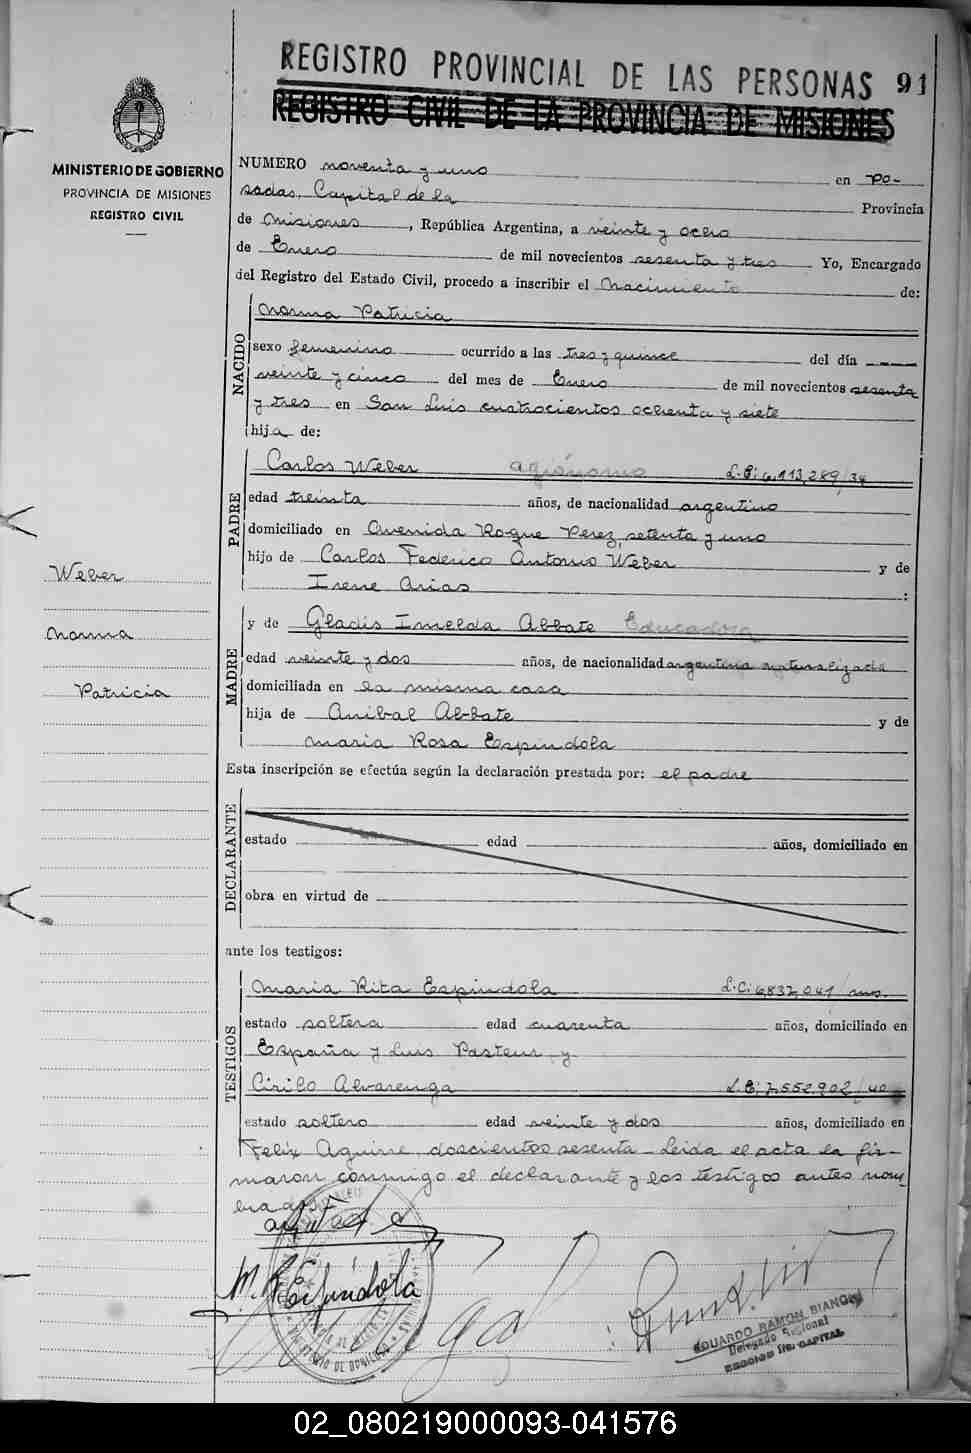 REGISTRO PROVINCIAL DE LAS PERSONAS 91
REGISTRO CIVIL DE LA PROVINCIA DE MISIONES
MINISTERIO DE GOBIERNO
PROVINCIA DE MISIONES
REGISTRO CIVIL
NUMERO noventa y uno en Po-
sadas, Capital de la Provincia
de Misiones, República Argentina, a veinte y ocho
de Enero de mil novecientos sesenta y tres Yo, Encargado
del Registro del Estado Civil, procedo a inscribir el nacimiento de:
NACIDO
Norma Patricia
sexo femenino ocurrido a las tres y quince del día
veinte y cinco del mes de Enero de mil novecientos sesenta
y tres en San Luis cuatrocientos ochenta y siete
hija de:
PADRE
Carlos Weber agrónomo L.E: 6.113,289/34
edad treinta años, de nacionalidad argentino
domiciliado en Avenida Roque Perez, setenta y uno
hijo de Carlos Federico Antonio Weber y de
Irene Arias :
Weber
Norma
Patricia
MADRE
y de Gladis Imelda Abbate Educadora
edad veinte y dos años, de nacionalidad argentina naturalizada
domiciliada en la misma casa
hija de Anibal Abbate y de
Maria Rosa Espindola
Esta inscripción se efectúa según la declaración prestada por: el padre
DECLARANTE
estado edad años, domiciliado en
obra en virtud de
ante los testigos:
TESTIGOS
Maria Rita Espindola L.C: 6832,041/ms.
estado soltera edad cuarenta años, domiciliado en
España y Luis Pasteur, y
Cirilo Alvarenga L.E: 7.552.902/40
estado soltero edad veinte y dos años, domiciliado en
Felix Aguirre, doscientos sesenta. Leida el acta la fir-
maron conmigo el declarante y los testigos antes nom-
brados.
M. R. Espíndola
EDUARDO RAMON BIANCHI
Delegado Regional
CAPITAL
02_080219000093-041576